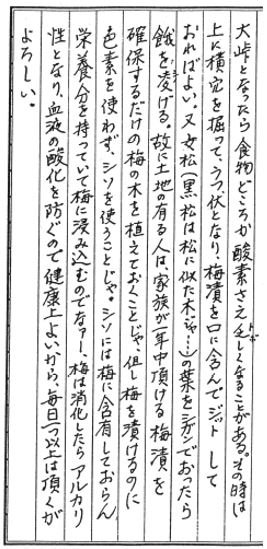 大峠となったら食物どころか酸素さえ乏しくなることがある。その時は
上に横穴を掘って、うつ伏となり梅漬を口に含んでジットして
おればよい。又女松(黒松は松に似た木じゃ…)の葉をシガンでおったら
餓を凌げる。故に土地の有る人は、家族が一年中頂ける梅漬を
確保するだけの梅の木を植えておくことじゃ。但し梅を漬けるのに
色素を使わず、シソを使うことじゃ。シソには梅に含有しておらん
栄養分を持っていて梅に浸み込むのでなァー、梅は消化したらアルカリ
性となり、血液の酸化を防ぐので健康上よいから、毎日一つ以上は頂くが
よろしい。